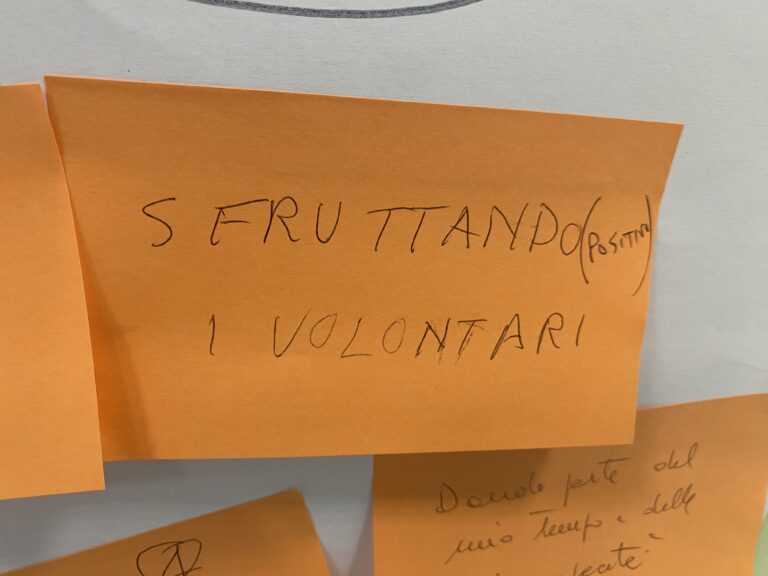 SFRUTTANDO (POSITIVO)
I VOLONTARI
Dando parte del
mio tempo e delle